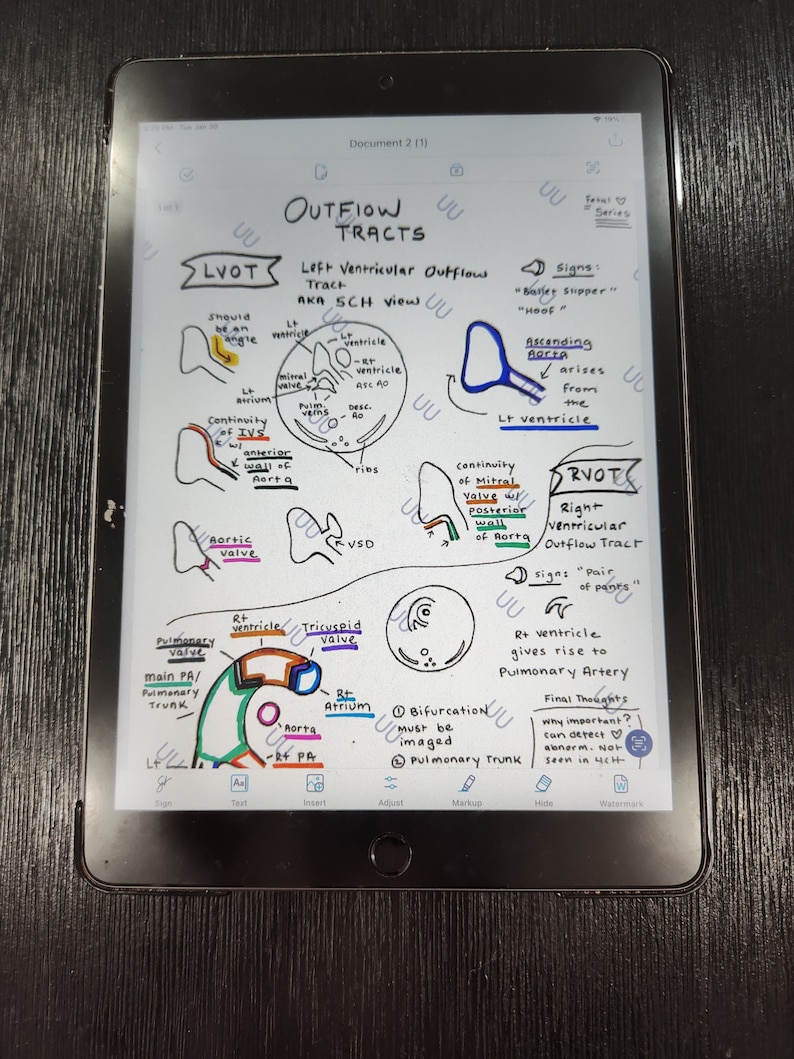 Tue Jan 30
19%
Document 2 (1)
1 of 1
OUTFLOW
TRACTS
Fetal
Series
LVOT
Left Ventricular Outflow
Tract
AKA 5CH view
Signs:
"Ballet Slipper"
"Hoof"
Should
be an
angle
Lt
ventricle
Lt
ventricle
Rt
ventricle
Asc AO
mitral
valve
Lt
Atrium
Pulm.
veins
Desc.
AO
ribs
Ascending
Aorta
arises
from
the
Lt ventricle
Continuity
of IVS
w/
anterior
wall of
Aorta
Continuity
of Mitral
Valve w/
posterior
wall
of Aorta
RVOT
Right
Ventricular
Outflow Tract
Aortic
valve
VSD
sign: "pair
of pants"
Rt ventricle
gives rise to
Pulmonary Artery
Rt
ventricle
Tricuspid
valve
Pulmonary
valve
main PA/
Pulmonary
Trunk
Rt
Atrium
Aorta
Rt PA
Lt
① Bifurcation
must be
imaged
② Pulmonary Trunk
Final Thoughts
why important?
can detect
abnorm. Not
seen in 4CH
Sign
Text
Insert
Adjust
Markup
Hide
Watermark
UU